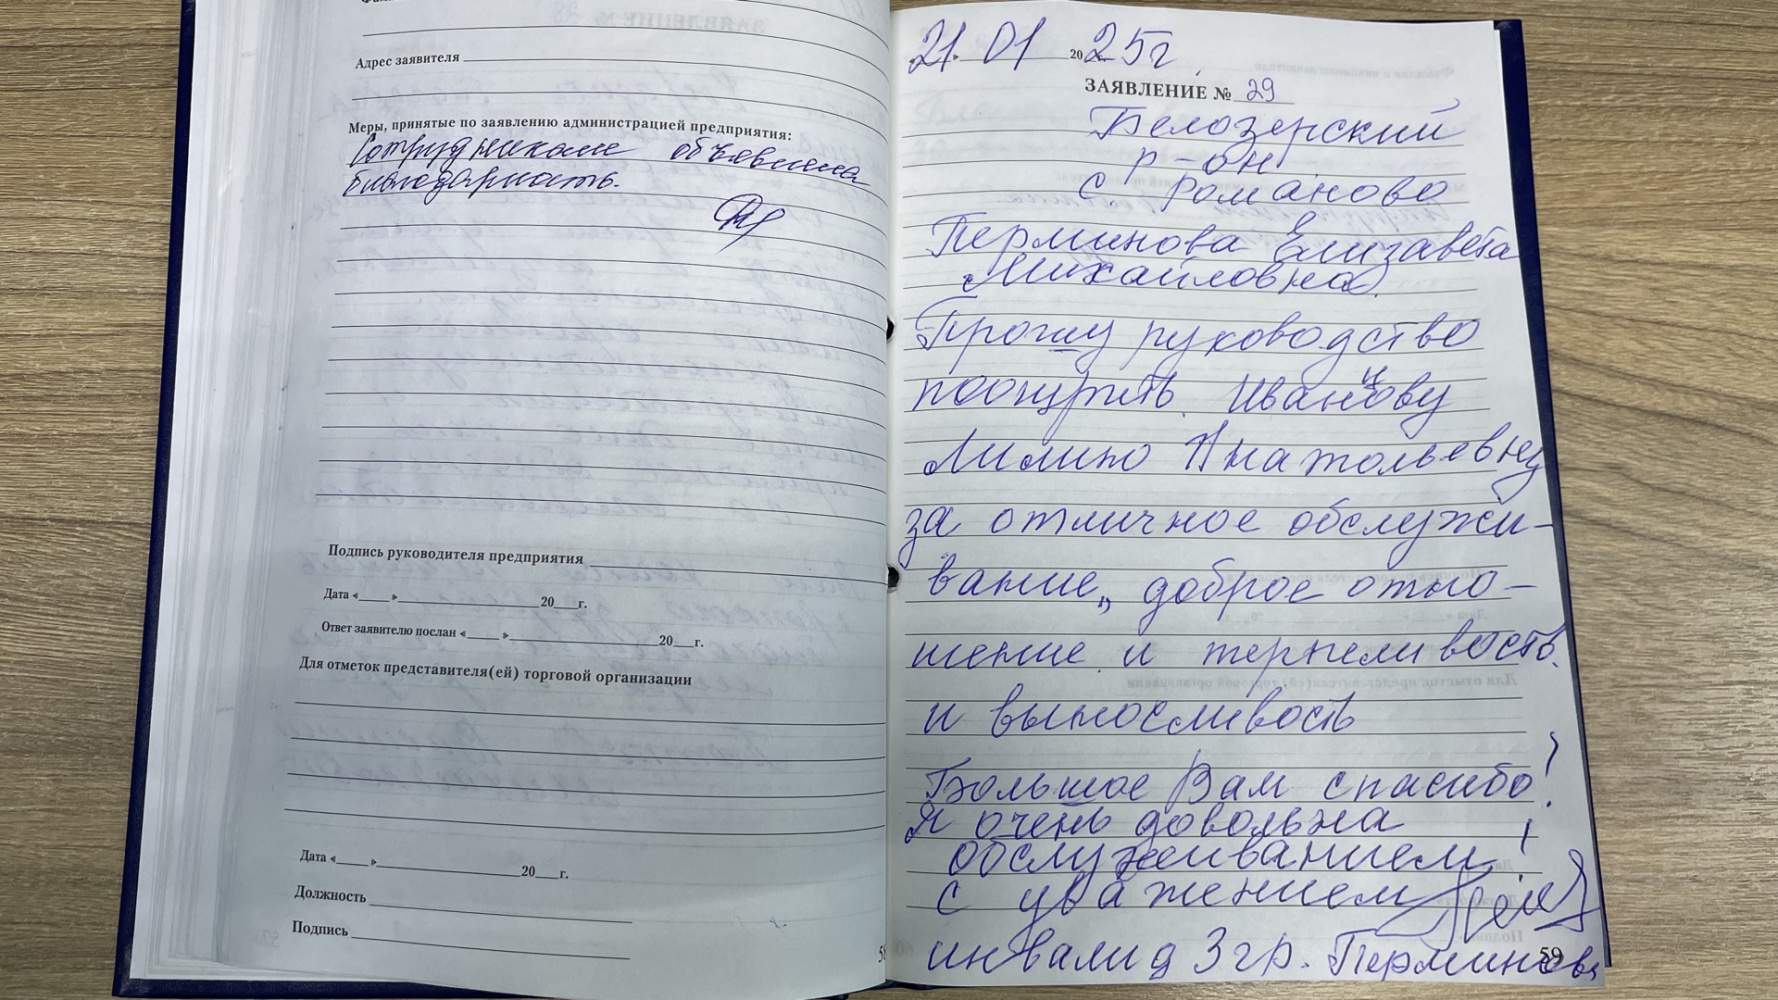 Адрес заявителя
Меры, принятые по заявлению администрацией предприятия:
Сотрудникам объявлена
благодарность.
Подпись руководителя предприятия
Дата «____»____20__г.
Ответ заявителю послан «____»____20__г.
Для отметок представителя(ей) торговой организации
Дата «____»____20__г.
Должность
Подпись
21. 01 2025г.
ЗАЯВЛЕНИЕ № 29
Белозерский
р-он
с Романово
Перминова Елизавета
Михайловна
Прошу руководство
поощрять Иванцову
Лилию Анатольевну
за отличное обслужи-
вание, доброе отно-
шение и терпеливость
и выносливость
Большое Вам спасибо!
Я очень довольна
обслуживанием!
с уважением
инвалид 3 гр. Перминова
59